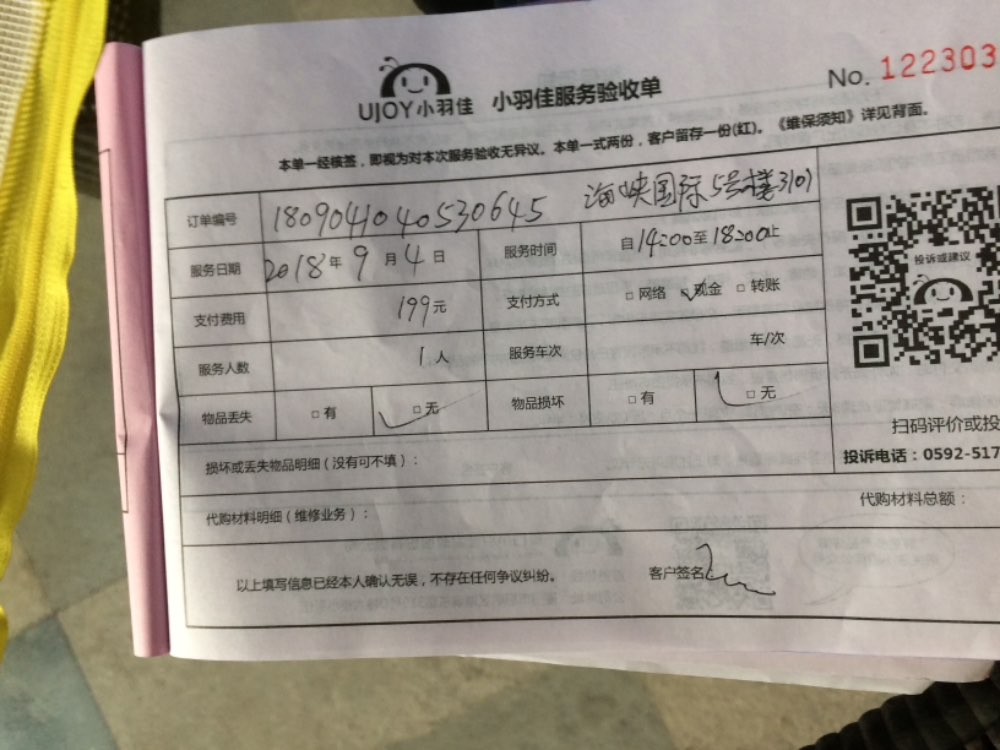 UJOY小羽佳 小羽佳服务验收单 No. 122303
本单一经核签，即视为对本次服务验收无异议。本单一式两份，客户留存一份(红)。《维保须知》详见背面。
订单编号 1809041040530645 海峡国际5号楼3101
服务日期 2018年9月4日 服务时间 自14:00至18:00止
支付费用 199元 支付方式 □网络 ☑现金 □转账
服务人数 1人 服务车次 车/次
物品丢失 □有 ☑无 物品损坏 □有 ☑无
投诉或建议
扫码评价或投
投诉电话：0592-517
损坏或丢失物品明细（没有可不填）：
代购材料明细（维修业务）： 代购材料总额：
以上填写信息已经本人确认无误，不存在任何争议纠纷。 客户签名